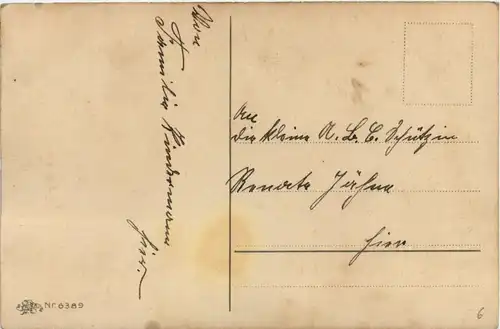 Von
Familie Hindermann
hier.
An
die kleine A. B. C. Schützin
Renate Jähne
hier
Nr. 6389
6